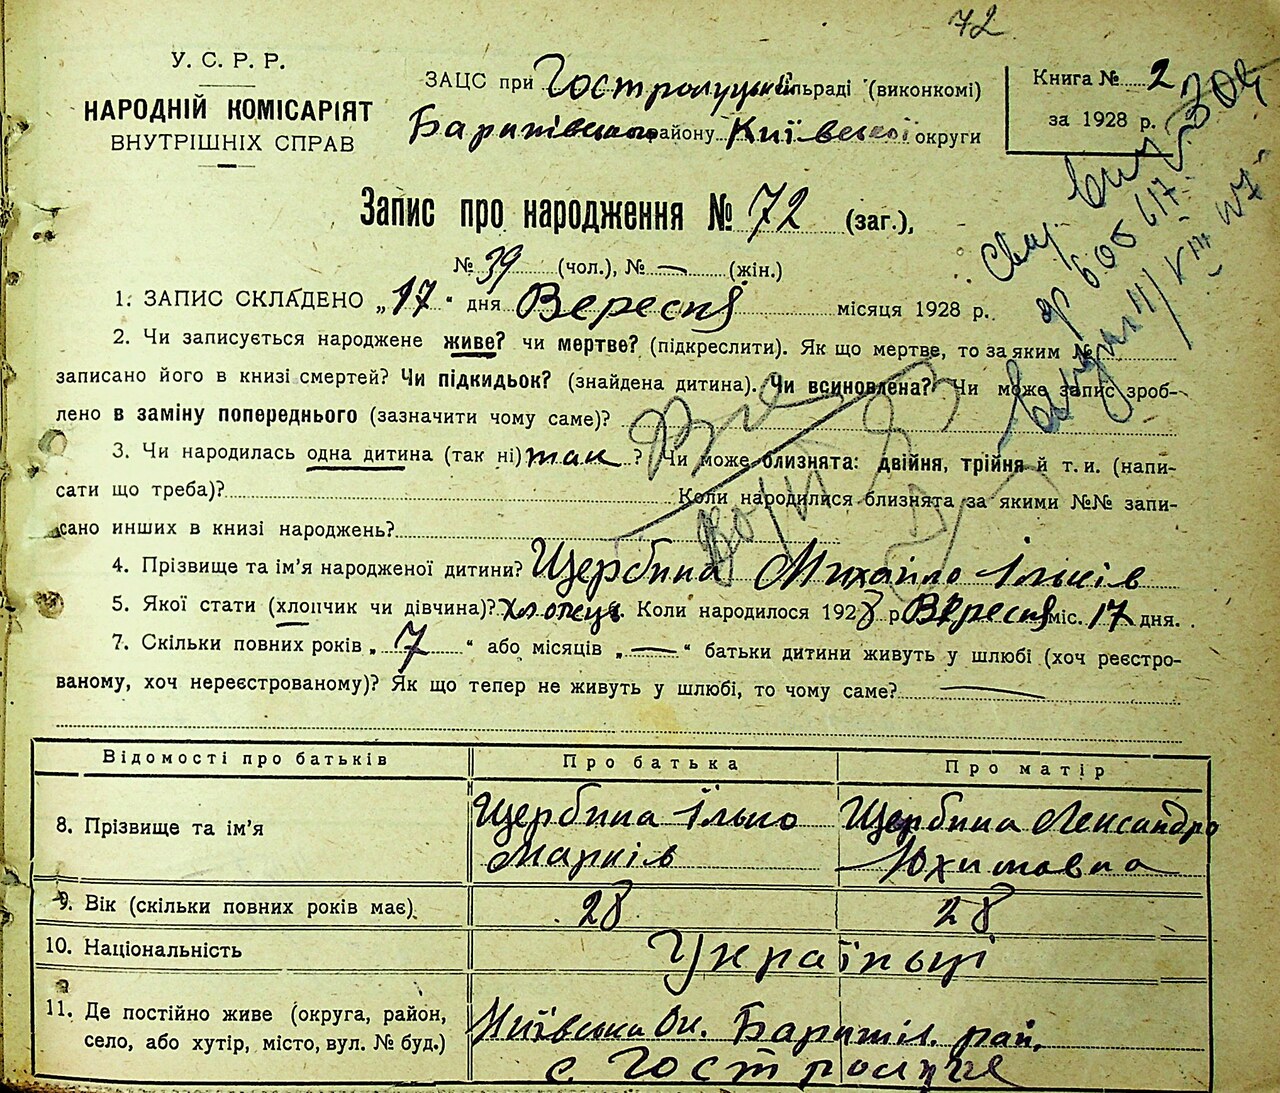 72
У. С. Р. Р.
НАРОДНІЙ КОМІСАРІЯТ
ВНУТРІШНІХ СПРАВ
ЗАЦС при Гостролуцькій сільраді (виконкомі)
Баришівського району Київської округи
Книга № 2
за 1928 р.
Запис про народження № 72 (заг.),
№ 39 (чол.), № — (жін.)
1. ЗАПИС СКЛАДЕНО „17" дня Вересня місяця 1928 р.
2. Чи записується народжене живе? чи мертве? (підкреслити). Як що мертве, то за яким №
записано його в книзі смертей? Чи підкидьок? (знайдена дитина). Чи всиновлена? Чи може запис зроб-
лено в заміну попереднього (зазначити чому саме)?
3. Чи народилась одна дитина (так ні) так ? Чи може близнята: двійня, трійня й т. и. (напи-
сати що треба)? Коли народилися близнята за якими №№ запи-
сано инших в книзі народжень?
4. Прізвище та ім'я народженої дитини? Щербина Михайло Ільків
5. Якої стати (хлопчик чи дівчина)? хлопець Коли народилося 1928 р. Вересня міс. 17 дня.
7. Скільки повних років „7" або місяців „—" батьки дитини живуть у шлюбі (хоч реєстро-
ваному, хоч нереєстрованому)? Як що тепер не живуть у шлюбі, то чому саме? —
Відомості про батьків Про батька Про матір
8. Прізвище та ім'я Щербина Ілько Щербина Лександра
Марків Юхимовна
9. Вік (скільки повних років має) 28 28
10. Національність Українці
11. Де постійно живе (округа, район,
село, або хутір, місто, вул. № буд.) Київська Ок. Баришів. рай.
с. Гостролуче